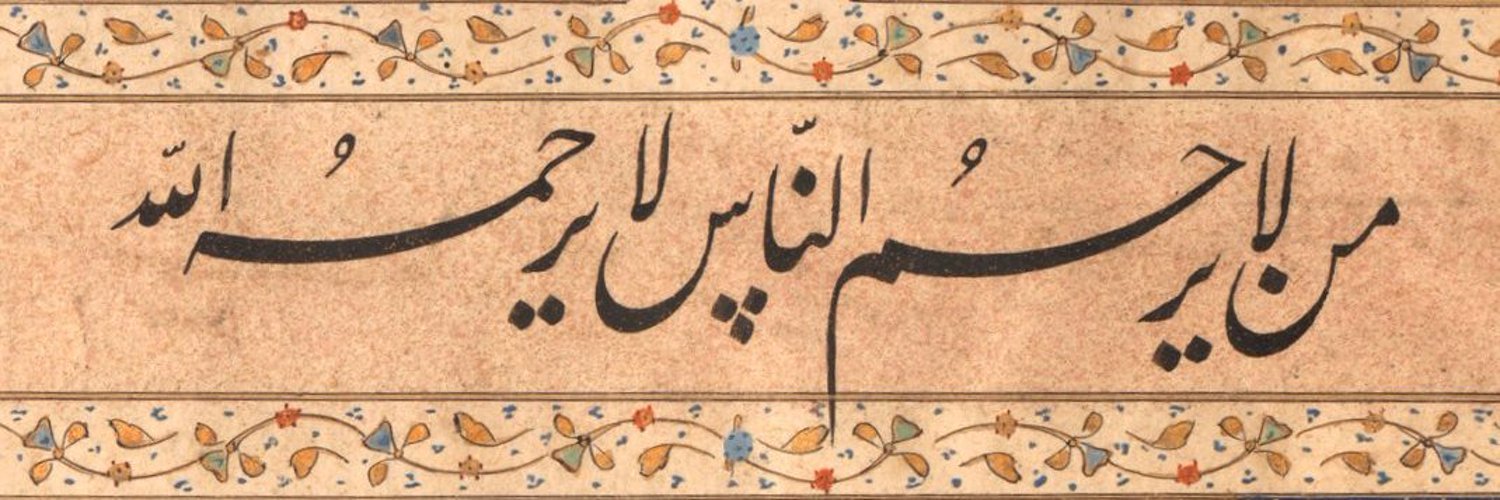 من لا يرحم النّاس لا يرحمه اللّه